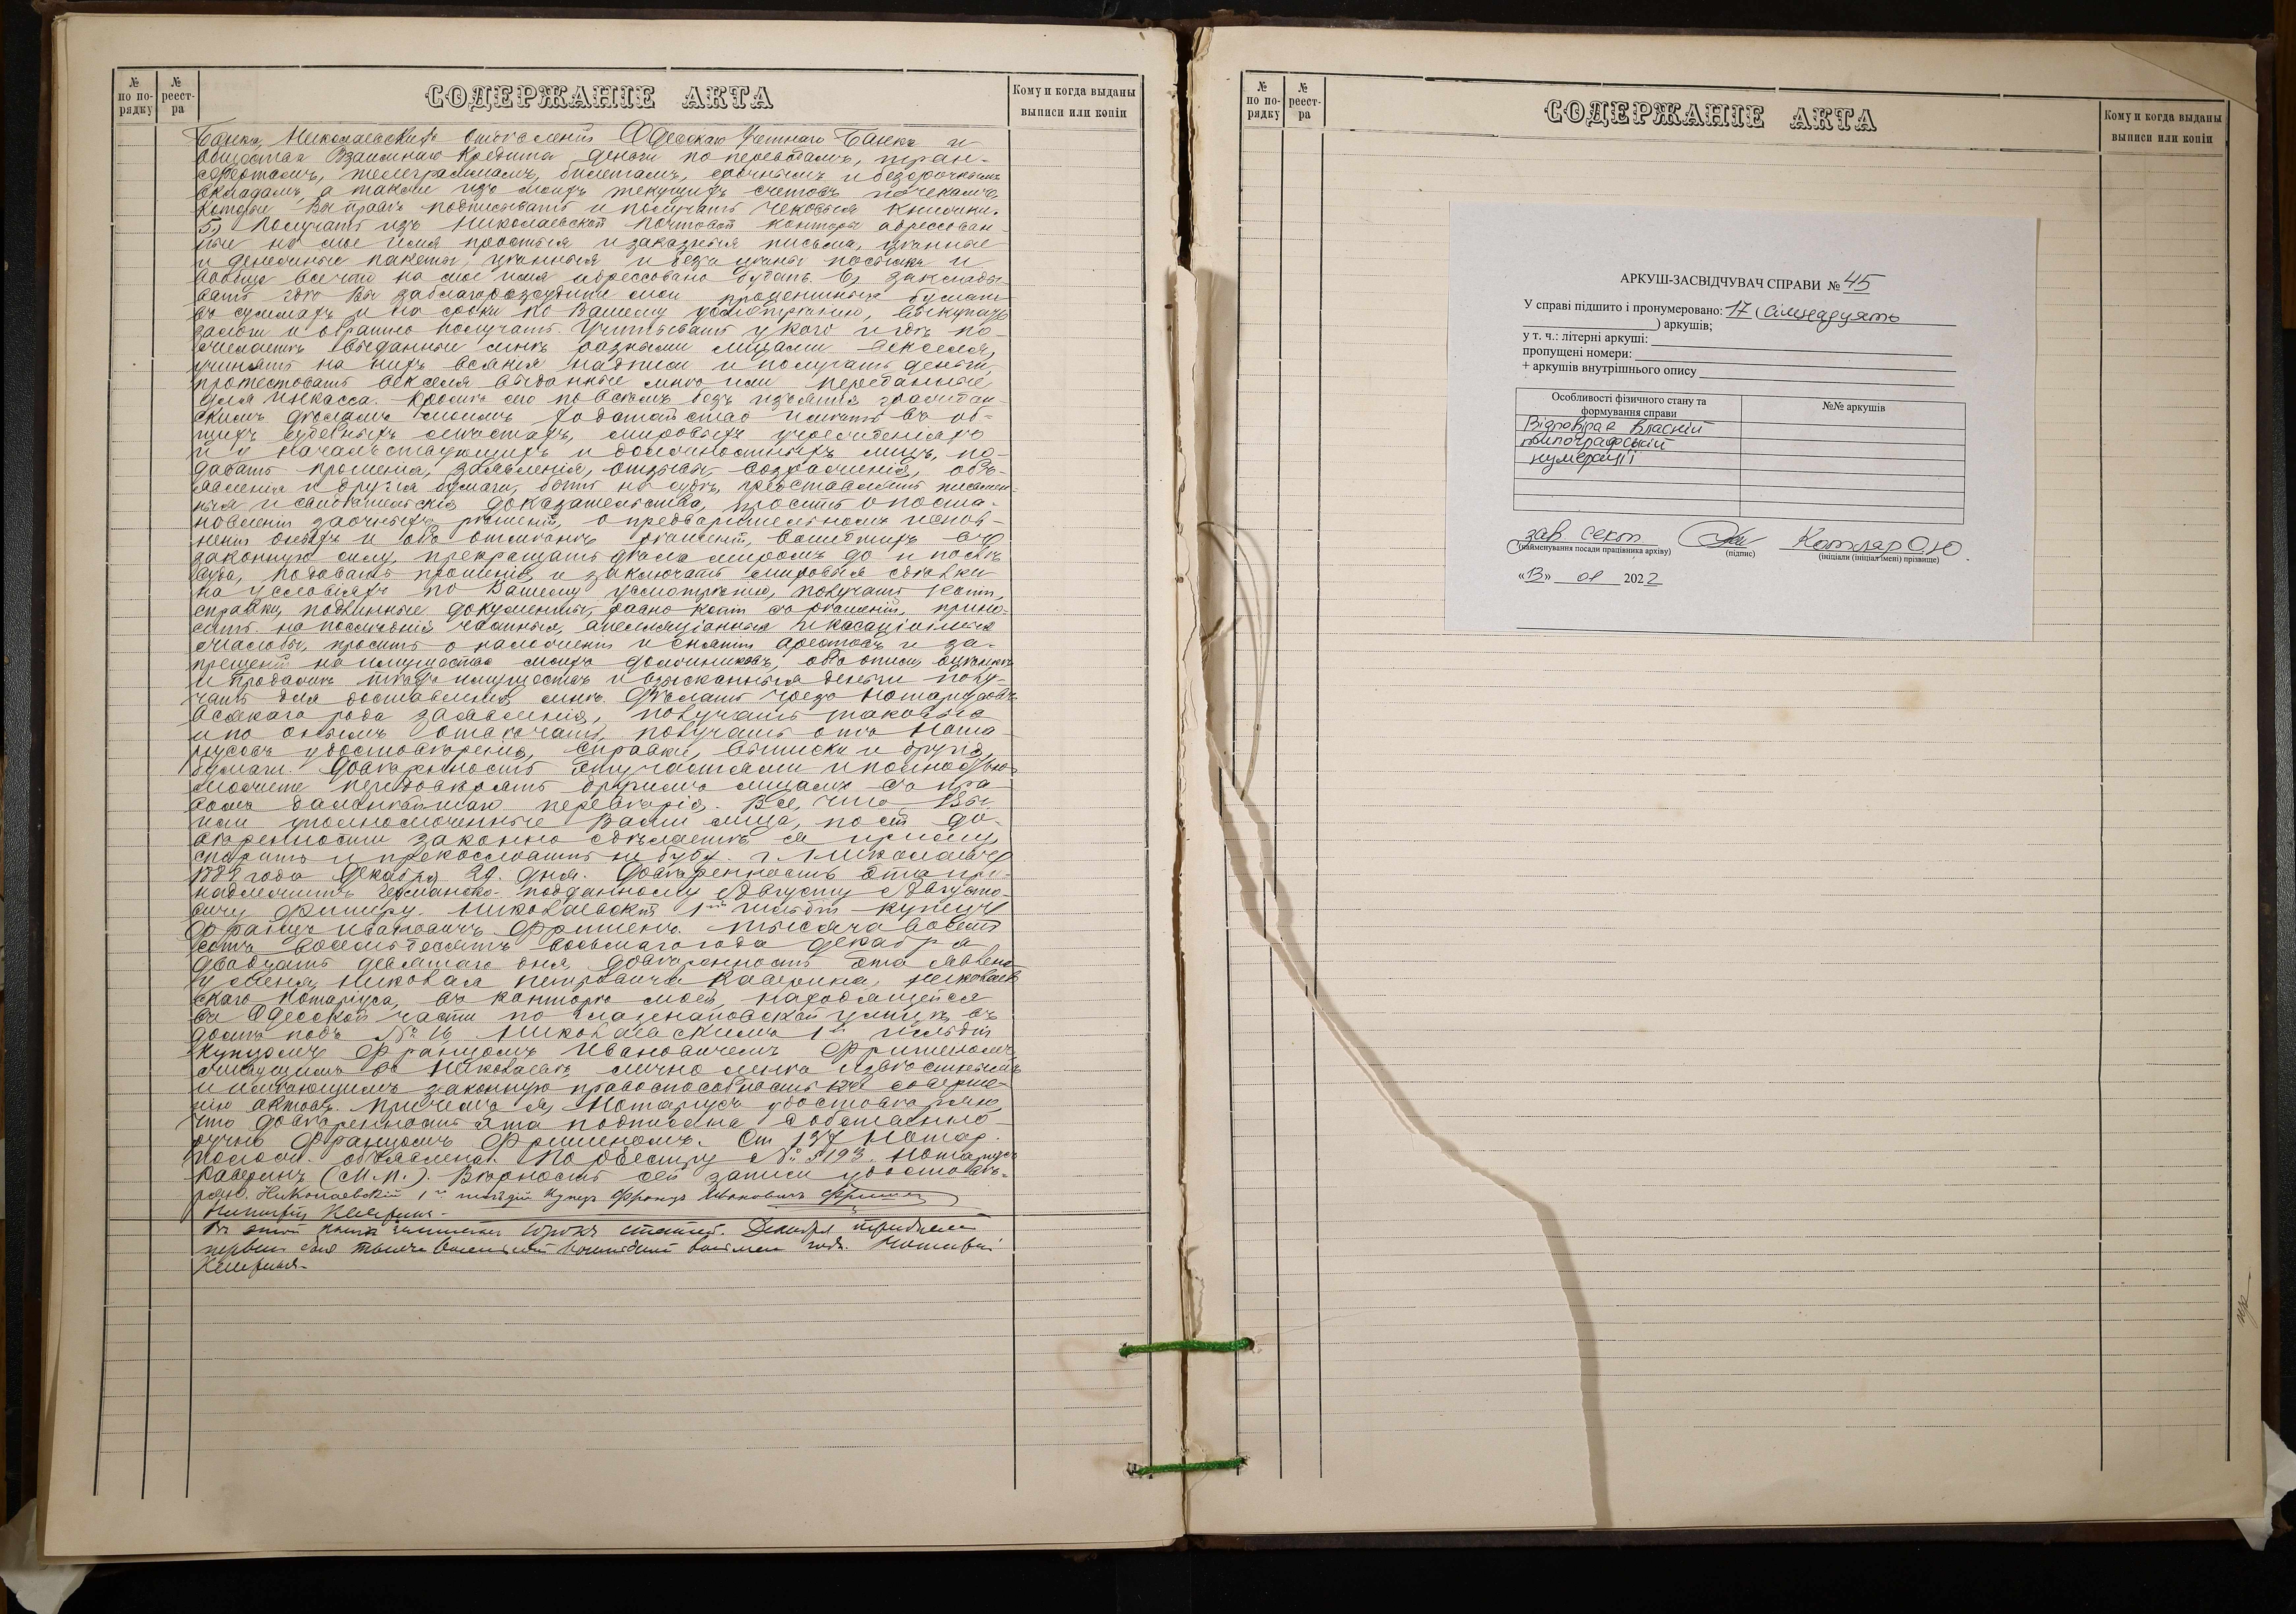 № по по-рядку
№ реест-ра
СОДЕРЖАНІЕ АКТА
Кому и когда выданы выписи или копіи
Банка, Николаевскихъ отдѣленій Одесскаго Учетнаго Банка и
Общества Взаимнаго Кредита деньги по переводамъ, тран-
сфертамъ, телеграммамъ, билетамъ, срочнымъ и безсрочнымъ
вкладамъ, а также изъ моихъ текущихъ счетовъ по чекамъ,
которые Вы вправѣ подписывать и получать чековыя книжки.
5) Получать изъ Николаевской почтовой конторы адрессован-
ные на мое имя простыя и заказныя письма, цѣнные
и денежные пакеты, цѣнныя и безъ цѣны посылки и
вообще все что на мое имя адрессовано будетъ. 6) Заклады-
вать гдѣ Вы заблагоразсудите мои процентныя бумаги
въ суммахъ и на сроки по Вашему усмотрѣнію, выкупать
залоги и обратно получать. Учитывать у кого и гдѣ по-
желаете выданные мнѣ разными лицами векселя,
учинять на нихъ всякія надписи и получать деньги,
протестовать векселя выданные мнѣ или переданные
для инкасса. Кромѣ сего по всѣмъ безъ изъятія граждан-
скимъ дѣламъ моимъ ходатайство имѣть въ об-
щихъ судебныхъ мѣстахъ, мировыхъ учрежденіяхъ
и у начальствующихъ и должностныхъ лицъ, по-
давать прошенія, заявленія, отзывы, возраженія, объ-
явленія и другія бумаги, быть на судѣ, представлять письмен-
ныя и свидѣтельскія доказательства, просить о поста-
новленіи заочныхъ рѣшеній, о предварительномъ испол-
неніи оныхъ и объ отмѣнѣ рѣшеній, вошедшихъ въ
законную силу, прекращать дѣла миромъ до и послѣ
суда, подавать прошенія и заключать мировыя сдѣлки
на условіяхъ по Вашему усмотрѣнію, получать копіи,
справки, подлинные документы, равно копіи съ рѣшеній, прино-
сить на послѣднія частныя, апелляціонныя и касаціонныя
жалобы, просить о наложеніи и снятіи арестовъ и за-
прещеній на имущество моихъ должниковъ, объ описи, оцѣнкѣ
и продажѣ ихъ имущества и взысканныя деньги полу-
чать для доставленія мнѣ. Дѣлать чрезъ Нотаріусовъ
всякаго рода заявленія, получать таковыя
и по онымъ отвѣчать, получать отъ Нота-
ріусовъ удостовѣренія, справки, выписки и другія
бумаги. Довѣренность эту частями и полностью
можете передовѣрять другимъ лицамъ съ пра-
вомъ дальнѣйшаго передовѣрія. Все, что Вы
или уполномоченные Вами лица, по сей до-
вѣренности законно сдѣлаете я приму,
спорить и прекословить не буду. г. Николаевъ
1888 года Декабря 29 дня. Довѣренность эта при-
надлежитъ Германско-подданному Августу Августо-
вичу Фишеру. Николаевскій 1й гильдіи купецъ
Францъ Ивановичъ Фришенъ. Тысяча восемь
сотъ восемьдесятъ восьмаго года Декабря
двадцать девятаго дня, довѣренность эта явлена
у меня, Николая Петровича Каверина, Николаев-
скаго Нотаріуса, въ конторѣ моей, находящейся
въ Одесской части по Глазенаповской улицѣ въ
домѣ подъ № 16 Николаевскимъ 1й гильдіи
купцомъ Францомъ Ивановичемъ Фришеномъ,
живущимъ въ Николаевѣ, лично мнѣ извѣстнымъ
и имѣющимъ законную правоспособность къ соверше-
нію актовъ. Причемъ я, Нотаріусъ удостовѣряю,
что довѣренность эта подписана собственно-
ручно Францомъ Фришеномъ. Ст. 137 Нотар.
полож. объявлена. По реестру № 5193. Нотаріусъ
Каверинъ (М.П.). Вѣрность сей записи удостовѣ-
ряю. Николаевскій 1й гильдіи купецъ Францъ Ивановичъ Фришенъ
Нотаріусъ Каверинъ.
Въ этой книгѣ записано статей. Декабря тридцать
перваго дня тысяча восемьсотъ восемьдесятъ восьмаго года. Нотаріусъ
Каверинъ.
№ по по-рядку
№ реест-ра
СОДЕРЖАНІЕ АКТА
Кому и когда выданы выписи или копіи
АРКУШ-ЗАСВІДЧУВАЧ СПРАВИ № 45
У справі підшито і пронумеровано: 17 (сімнадцять
) аркушів;
у т. ч.: літерні аркуші:
пропущені номери:
+ аркушів внутрішнього опису
Особливості фізичного стану та формування справи
№№ аркушів
Відповідає власній
типографській
нумерації
зав. сект. Котляр О.Ю.
(найменування посади працівника архіву) (підпис) (ініціали (ініціал імені) прізвище)
«13» 01 2022